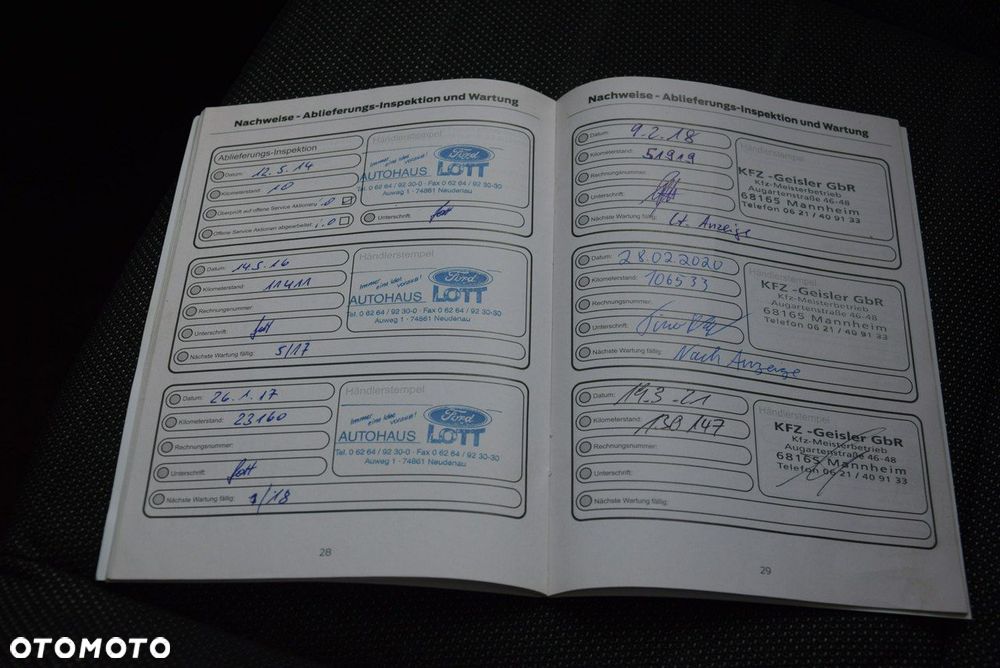 Nachweise - Ablieferungs-Inspektion und Wartung
Ablieferungs-Inspektion
Datum: 12.5.14
Kilometerstand: 10
Überprüft auf offene Service Aktionen: i.O
Offene Service Aktionen abgearbeitet: i.O
Händlerstempel
Immer eine Idee voraus!
Ford
AUTOHAUS LOTT
Tel. 0 62 64 / 92 30-0 · Fax 0 62 64 / 92 30-30
Auweg 1 - 74861 Neudenau
Unterschrift: Lott
Datum: 14.5.16
Kilometerstand: 11411
Rechnungsnummer:
Unterschrift: Lott
Nächste Wartung fällig: 5/17
Händlerstempel
Immer eine Idee voraus!
Ford
AUTOHAUS LOTT
Tel. 0 62 64 / 92 30-0 · Fax 0 62 64 / 92 30-30
Auweg 1 - 74861 Neudenau
Datum: 26.1.17
Kilometerstand: 23160
Rechnungsnummer:
Unterschrift: Lott
Nächste Wartung fällig: 1/18
Händlerstempel
Immer eine Idee voraus!
Ford
AUTOHAUS LOTT
Tel. 0 62 64 / 92 30-0 · Fax 0 62 64 / 92 30-30
Auweg 1 - 74861 Neudenau
28
Nachweise - Ablieferungs-Inspektion und Wartung
Datum: 9.2.18
Kilometerstand: 51919
Rechnungsnummer:
Unterschrift:
Nächste Wartung fällig: Lt. Anzeige
Händlerstempel
KFZ -Geisler GbR
Kfz-Meisterbetrieb
Augartenstraße 46-48
68165 Mannheim
Telefon 06 21 / 40 91 33
Datum: 28.02.2020
Kilometerstand: 106533
Rechnungsnummer:
Unterschrift:
Nächste Wartung fällig: Nach Anzeige
Händlerstempel
KFZ -Geisler GbR
Kfz-Meisterbetrieb
Augartenstraße 46-48
68165 Mannheim
Telefon 06 21 / 40 91 33
Datum: 19.3.21
Kilometerstand: 130147
Rechnungsnummer:
Unterschrift:
Nächste Wartung fällig:
Händlerstempel
KFZ -Geisler GbR
Kfz-Meisterbetrieb
Augartenstraße 46-48
68165 Mannheim
Telefon 06 21 / 40 91 33
29
OTOMOTO